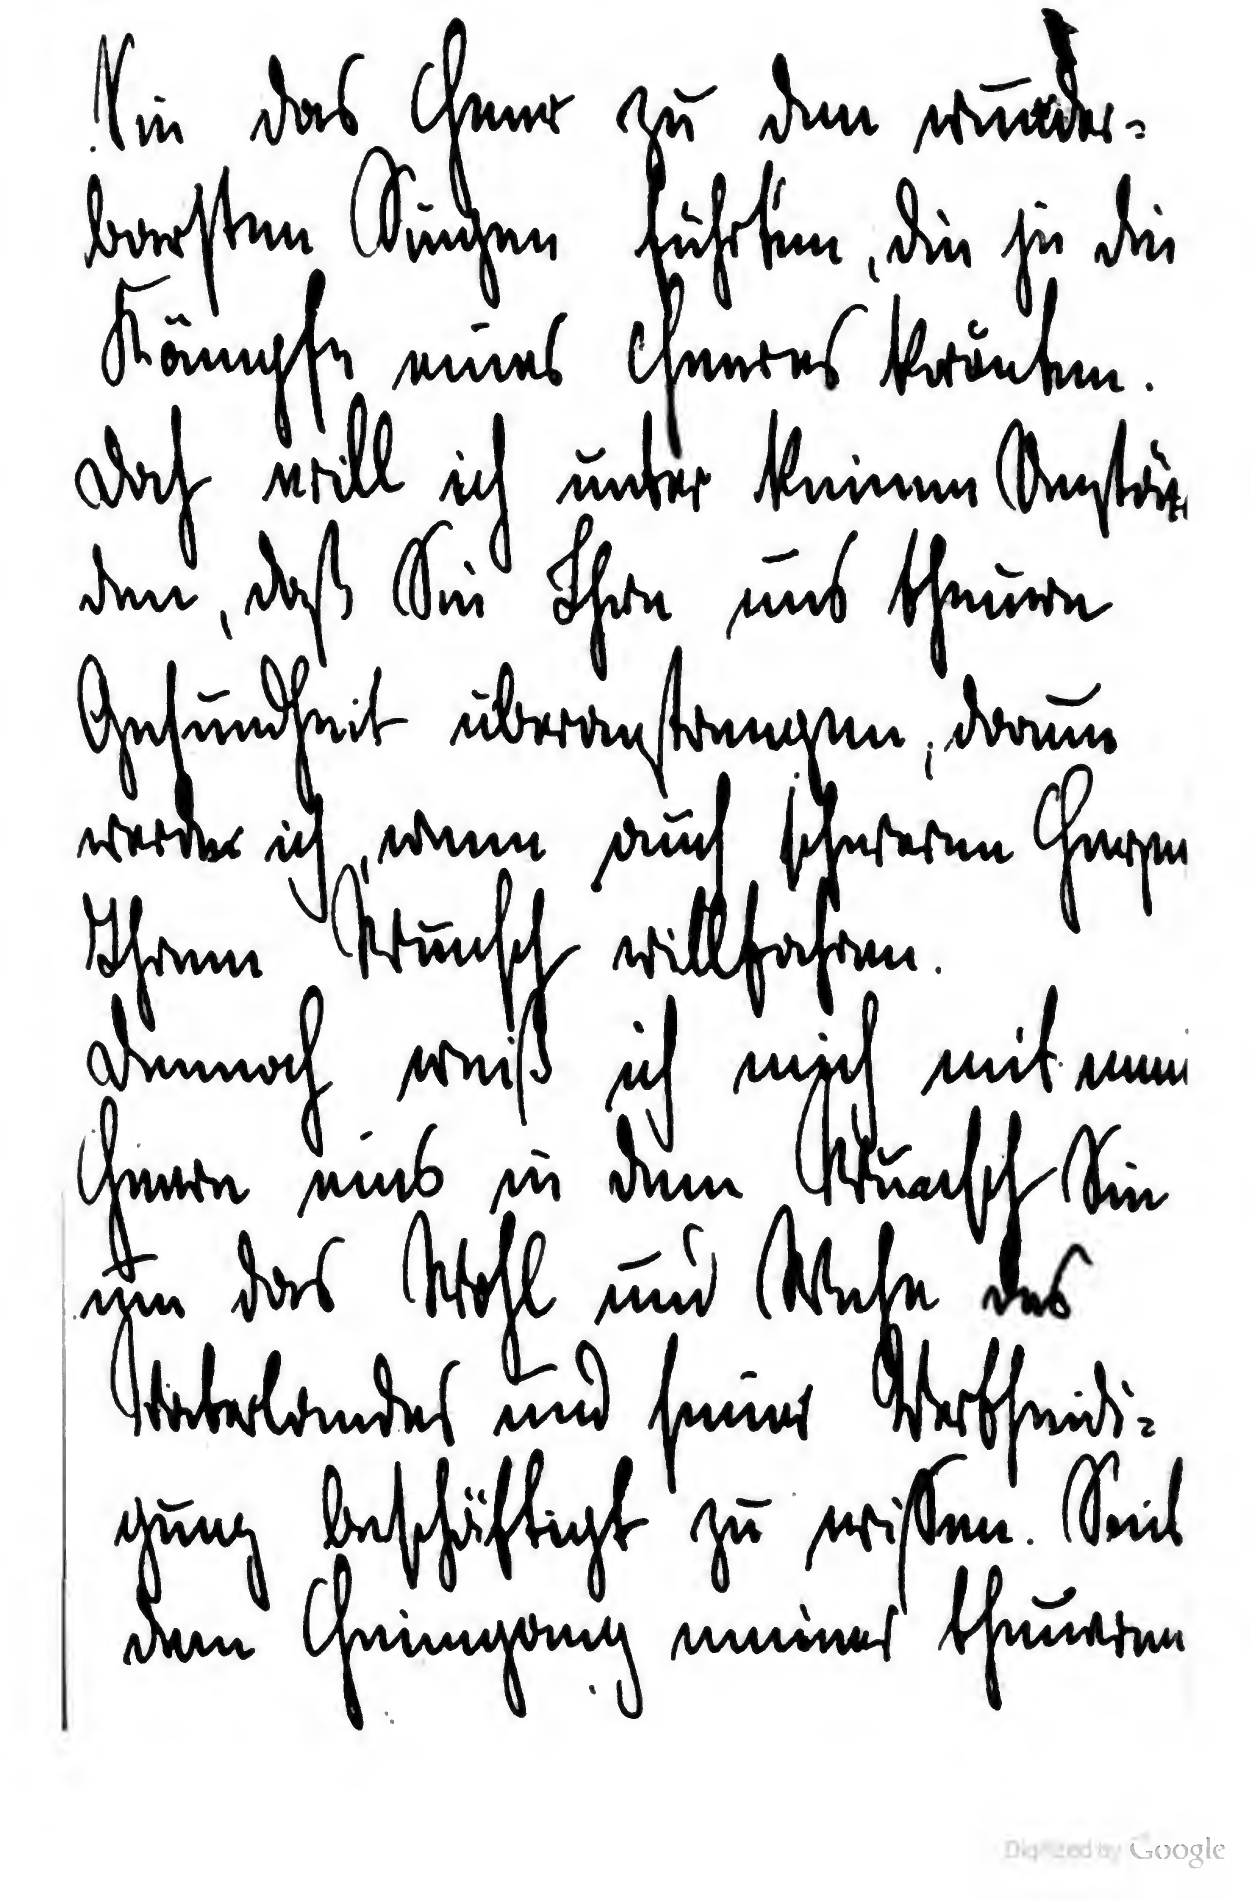 Sie das Heer zu den wunder-
barsten Siegen führten, die je die
Kämpfe eines Heeres krönten.
Doch will ich unter keinen Umstän
den, daß Sie Ihre uns theure
Gesundheit überanstrengen, darum
werde ich, wenn auch schweren Herzen
Ihrem Wunsch willfahren.
Dennoch weiß ich mich mit mein
Heere eins in dem Wunsch Sie
um das Wohl und Wehe des
Vaterlandes und seiner Vertheidi-
gung beschäftigt zu wissen. Seit
dem Heimgang meines theueren
Digitized by Google